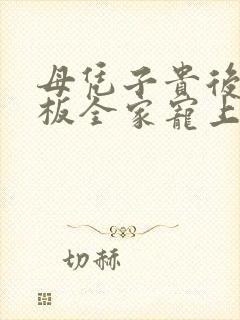 母凭子貴後
板全家寵上
切赫